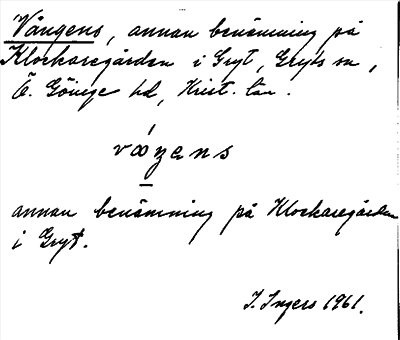 Vångens, annan benämning på
Klockaregården i Gryt, Gryts sn,
Ö. Göinge hd, Krist. län.
annan benämning på Klockaregården
i Gryt.
I. Ingers 1961.